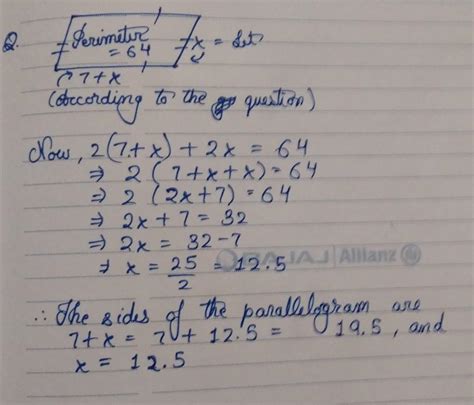 Q. Perimeter = 64
x = Let
7+x
(According to the question)
Now, 2(7+x) + 2x = 64
⇒ 2 (7+x+x) = 64
⇒ 2 (2x+7) = 64
⇒ 2x + 7 = 32
⇒ 2x = 32-7
⇒ x = 25/2 = 12.5
BAJAJ | Allianz
∴ The sides of the parallelogram are
7+x = 7 + 12.5 = 19.5, and
x = 12.5